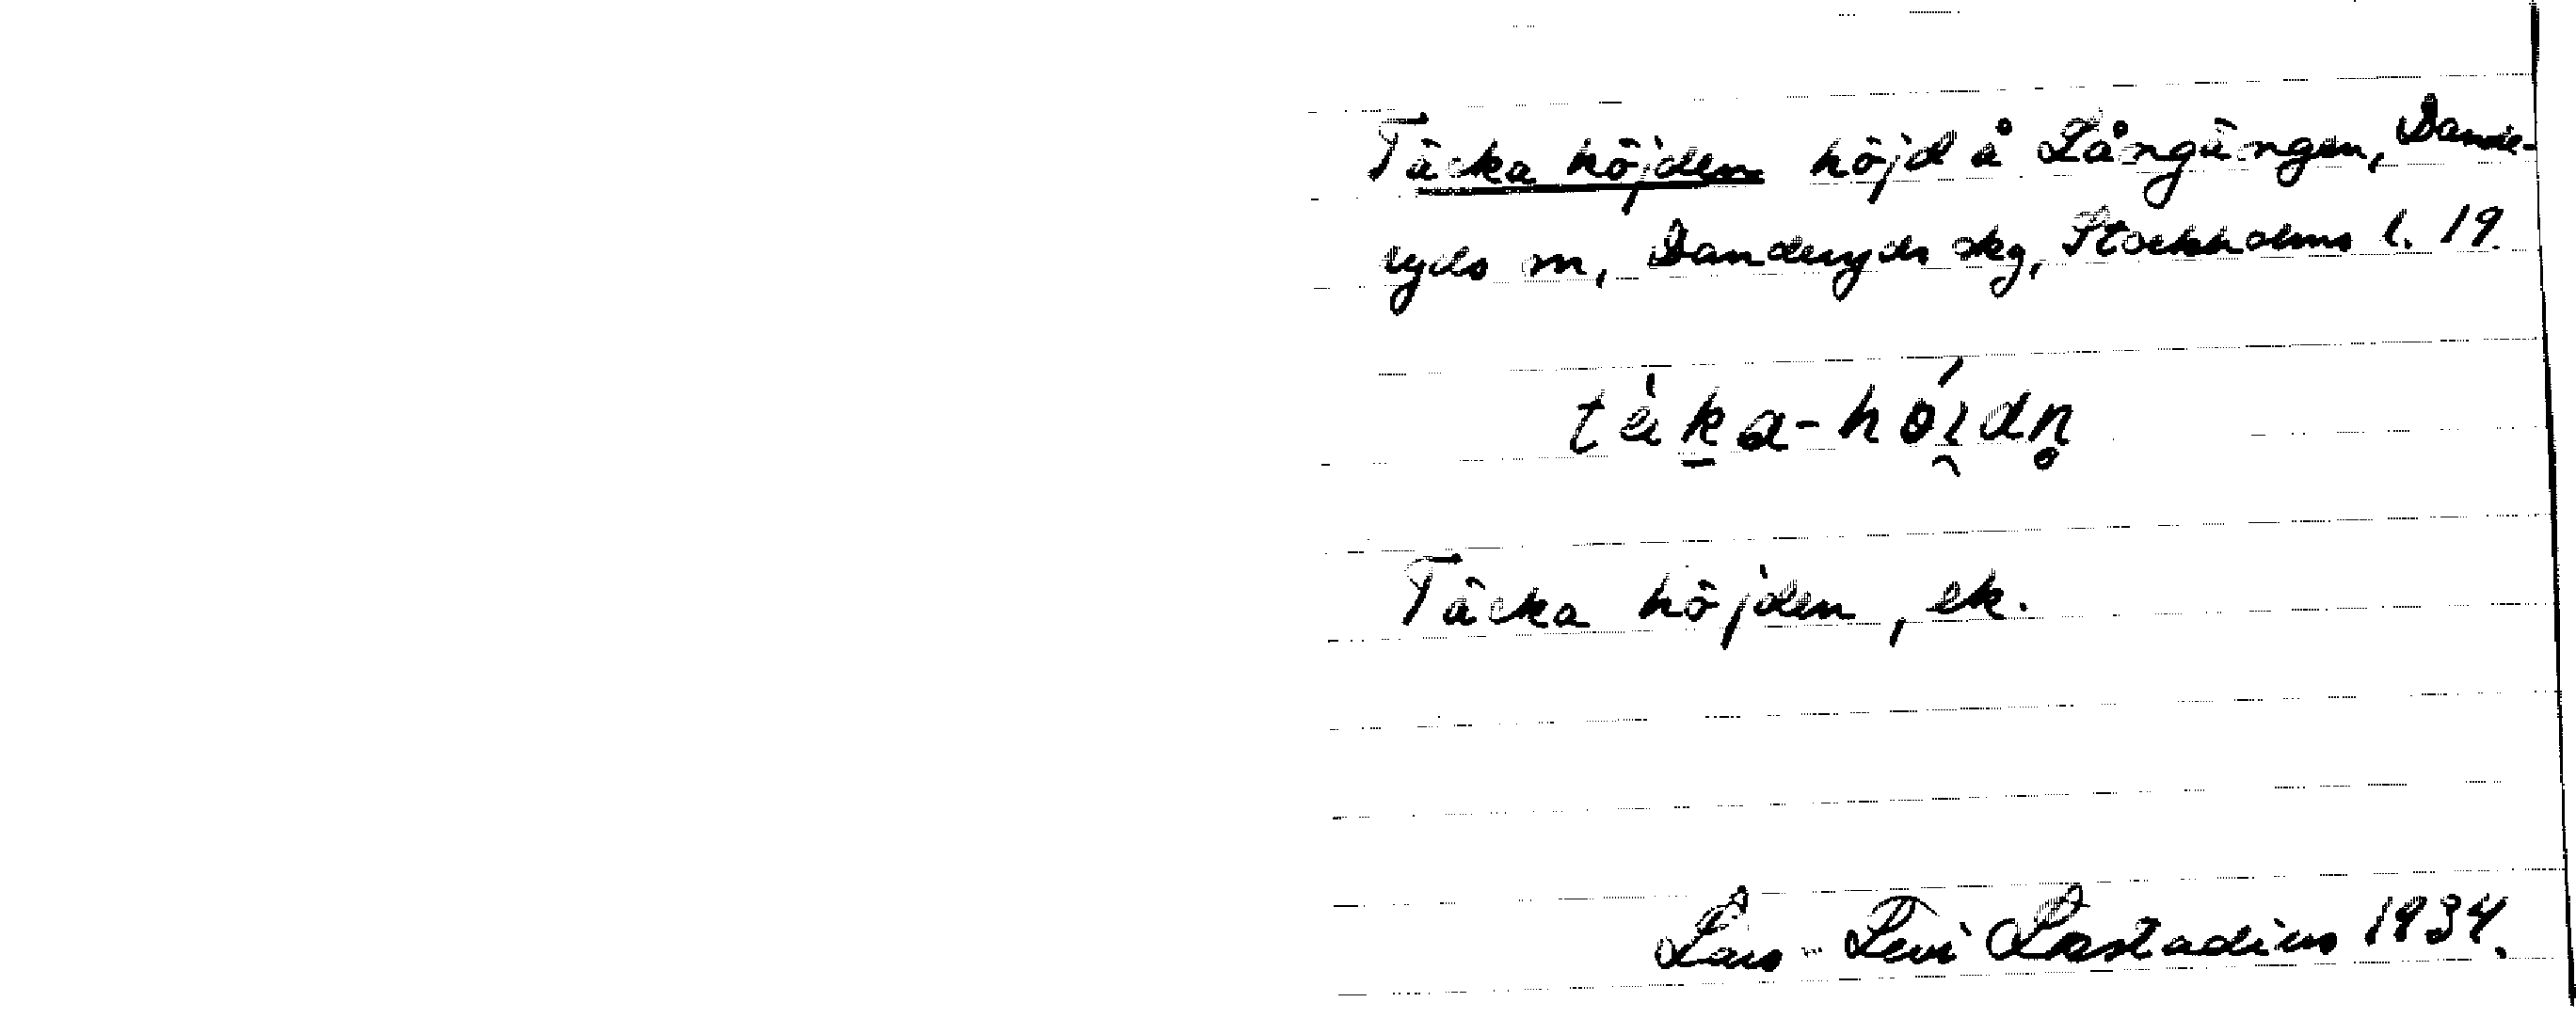 Täcka höjden höjd å Långängen, Dande-
ryds sn, Danderyds skg, Stockholms l. 19
tä̀ka-hǿı̯dn̥
Täcka höjden, ek.
Lars-Levi Læstadius 1934.